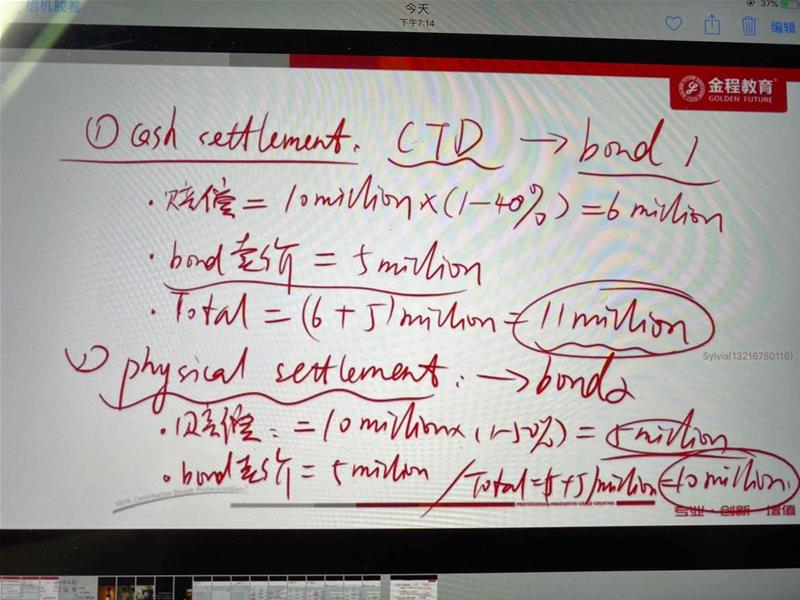 相机胶卷
今天
下午7:14
37%
编辑
金程教育
GOLDEN FUTURE
① cash settlement. CTD → bond 1
· 赔偿 = 10 million × (1-40%) = 6 million
· bond卖价 = 5 million
· Total = (6+5) million = 11 million
Sylvia(13216750116)
② physical settlement: → bond2
· 赔偿: = 10 million × (1-50%) = 5 million
· bond卖价 = 5 million / Total = (5+5) million = 10 million.
专业·创新·增值